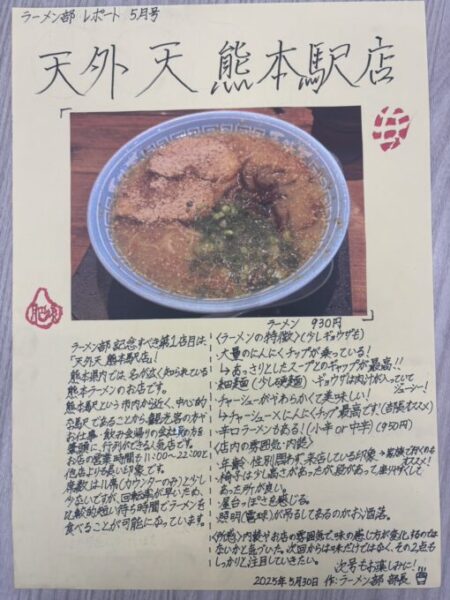 ラーメン部 レポート 5月号
天外天 熊本駅店
肥後
ラーメン 930円
ラーメン部 記念すべき第1店目は、
「天外天 熊本駅店」!
熊本県内では、名が広く知られている
熊本ラーメンのお店です。
熊本駅という市内から近く、中心的
な駅であることから観光客の方や
お仕事・飲み会帰りの会社員の方を
筆頭に、行列ができる名店です。
お店の営業時間も11:00〜22:00と
他店よりも長い印象です。
席数は11席(カウンターのみ)と少し
少ないですが、回転率が早いため、
比較的短い待ち時間でラーメンを
食べることが可能になっています。
〈ラーメンの特徴〉(少しギョウザも)
・大量のにんにくチップが乗っている!
↳あっさりとしたスープとのギャップが最高!!
・細麺(少し硬麺)・ギョウザは肉汁が入っていて
ジューシー!
・チャーシューがやわらかくて美味しい!
↳チャーシュー×にんにくチップ最高です!
・辛口ラーメンもある!(小辛or中辛)(950円)
〈店内の雰囲気・内装〉
・年齢・性別問わず、来店している印象
・椅子は少し高さがあったが、段があって座りやすくて
あった所が良い。
・屋台っぽさを感じる。
・照明(電球)が吊るしてあるのがお洒落。
〈所感〉内装やお店の雰囲気で、味の感じ方が変化するのでは
ないかと気づいた。次回からは味だけではなく、その2点も
しっかりと注目していきたい。
次号もお楽しみに!
2025年5月30日 作:ラーメン部 部長